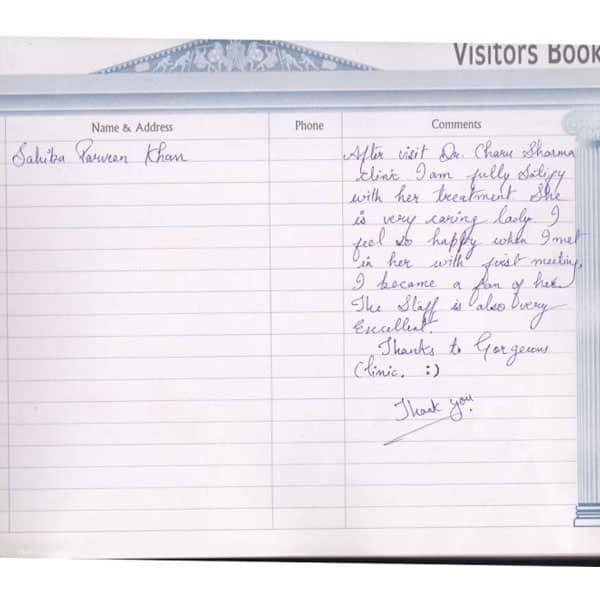 Visitors Book
Name & Address
Phone
Comments
Sahiba Parveen Khan
After visit Dr. Charu Sharma
clinic I am fully Satisfy
with her treatment She
is very caring lady I
feel so happy when I met
in her with first meeting,
I became a fan of her.
The Staff is also very
Excellent.
Thanks to Gorgeous
Clinic. :)
Thank you.